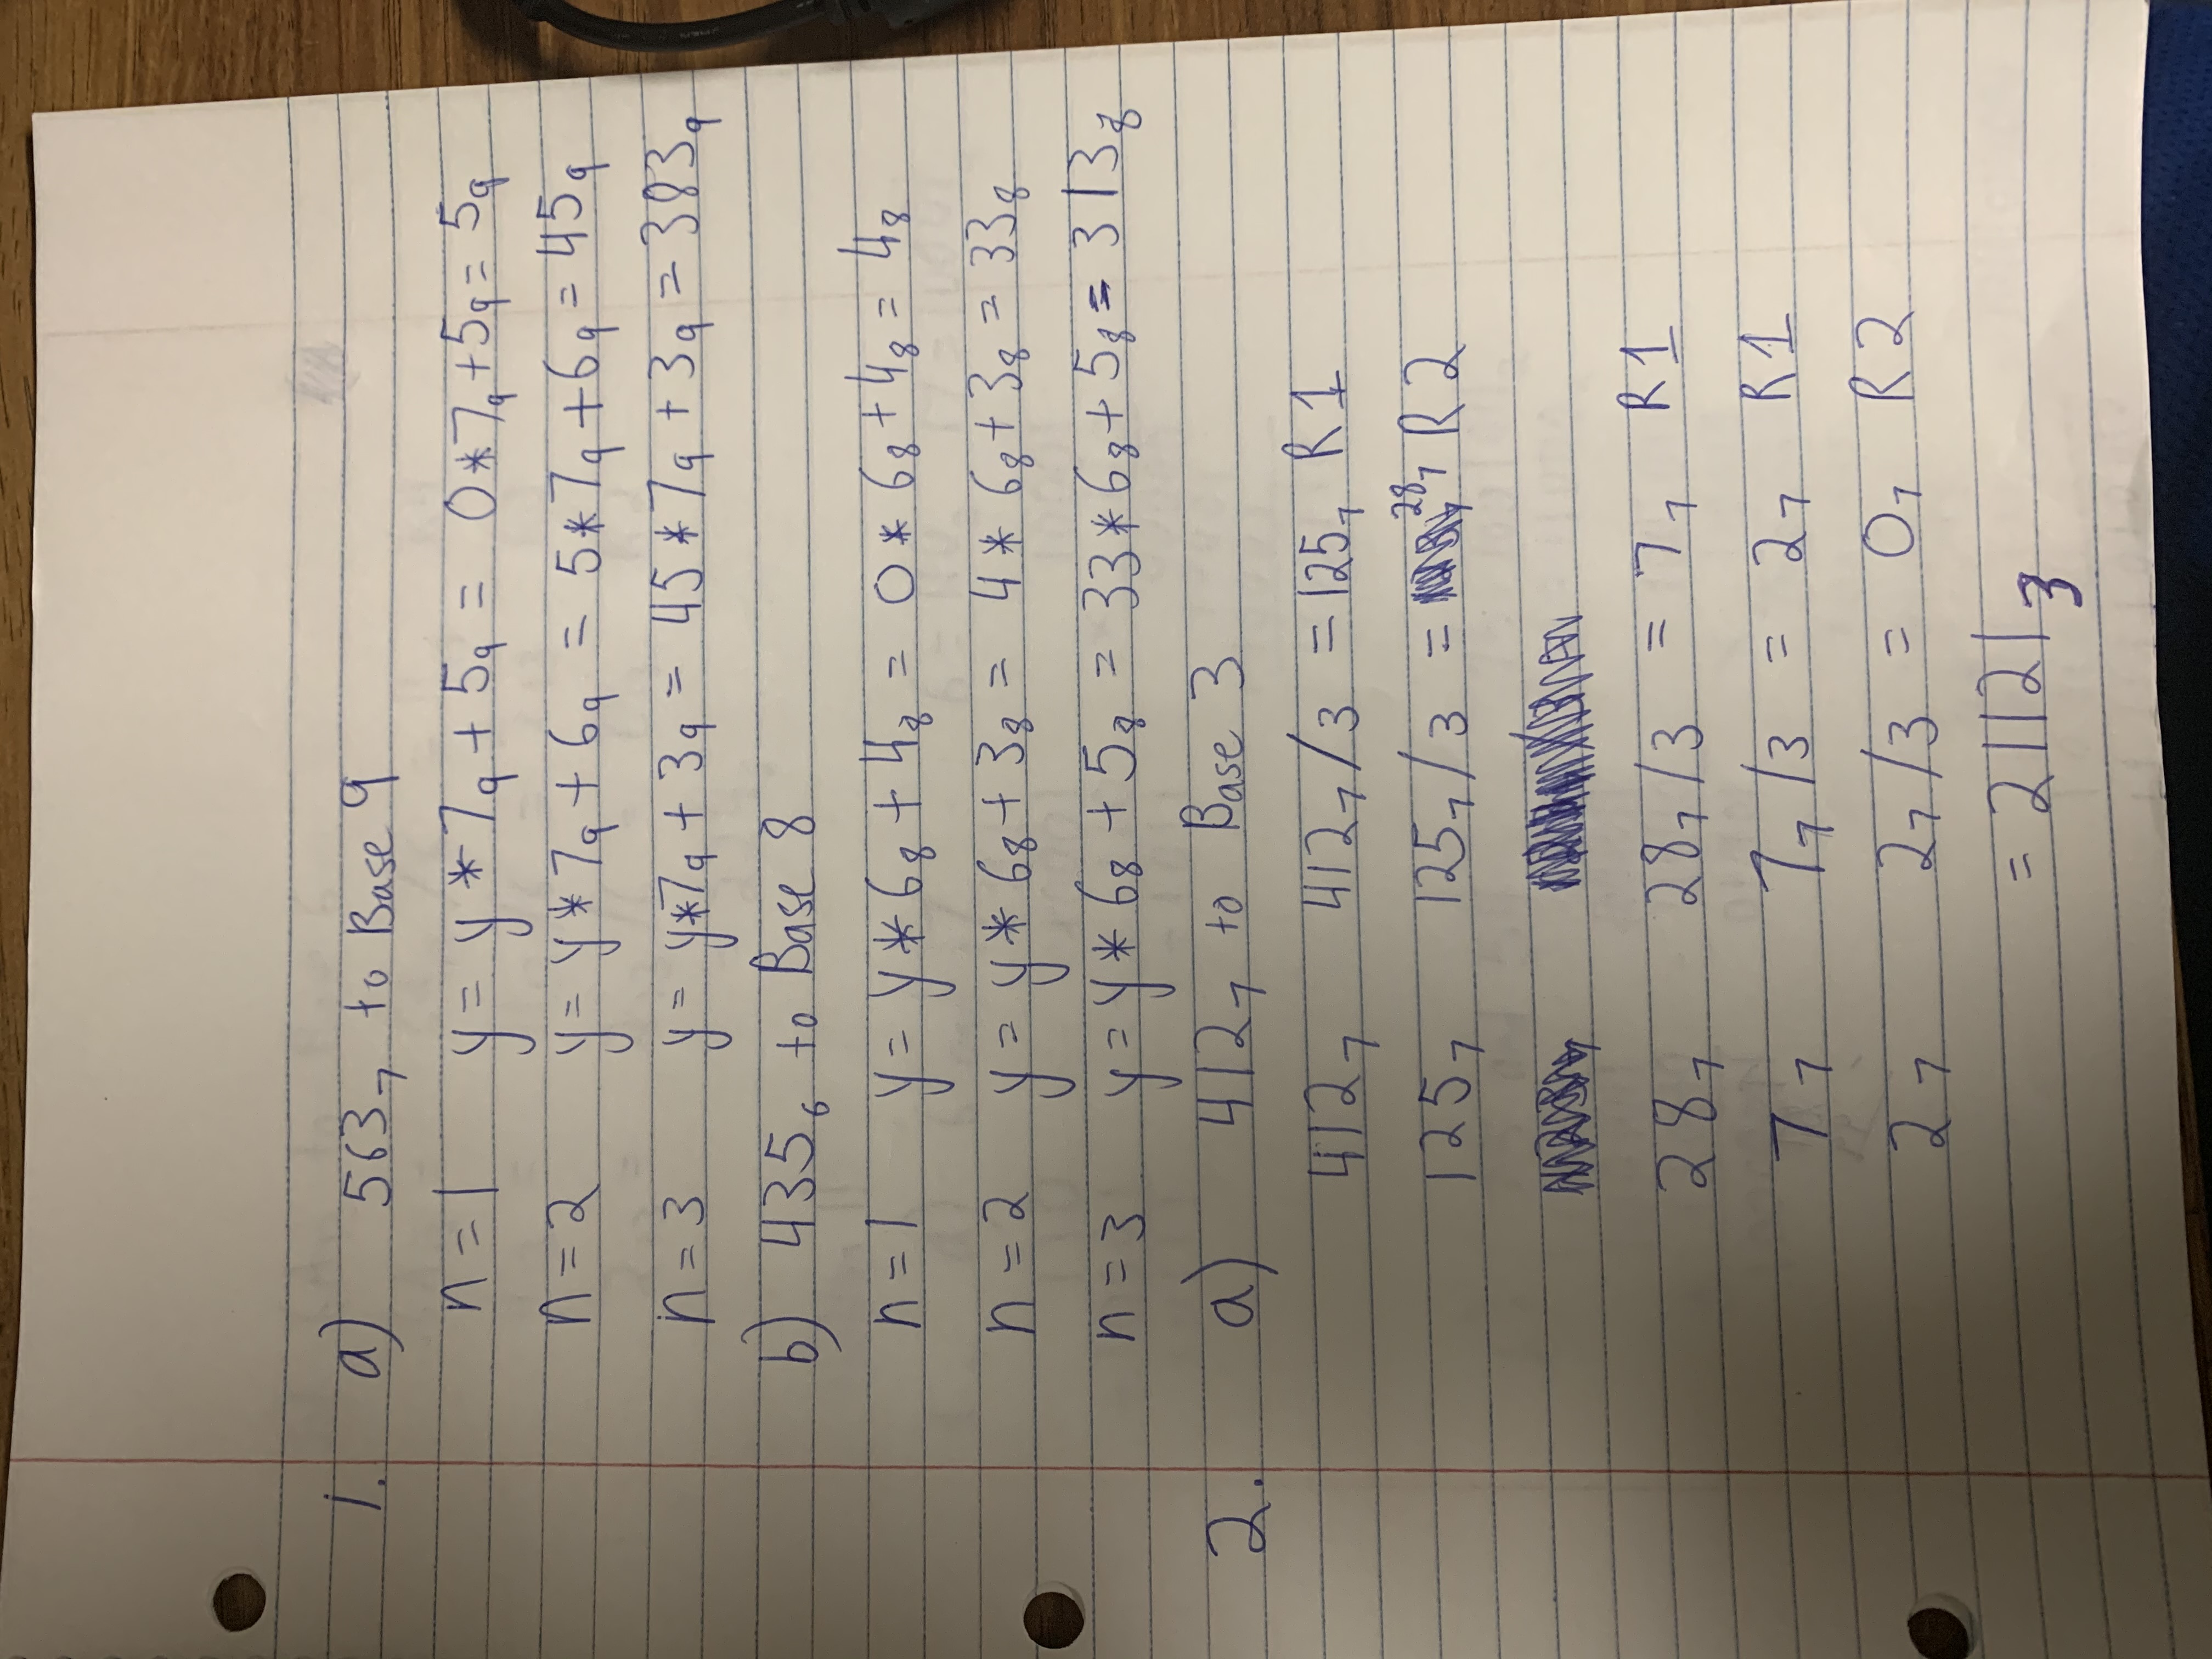 1. a) 563₇ to Base 9
n=1 y = y * 7₉ + 5₉ = 0 * 7₉ + 5₉ = 5₉
n=2 y = y * 7₉ + 6₉ = 5 * 7₉ + 6₉ = 45₉
n=3 y = y * 7₉ + 3₉ = 45 * 7₉ + 3₉ = 383₉
b) 435₆ to Base 8
n=1 y = y * 6₈ + 4₈ = 0 * 6₈ + 4₈ = 4₈
n=2 y = y * 6₈ + 3₈ = 4 * 6₈ + 3₈ = 33₈
n=3 y = y * 6₈ + 5₈ = 33 * 6₈ + 5₈ = 313₈
2. a) 412₇ to Base 3
412₇ 412₇/3 = 125₇ R1
125₇ 125₇/3 = 28₇ R2
28₇ 28₇/3 = 7₇ R1
7₇ 7₇/3 = 2₇ R1
2₇ 2₇/3 = 0₇ R2
= 21121₃